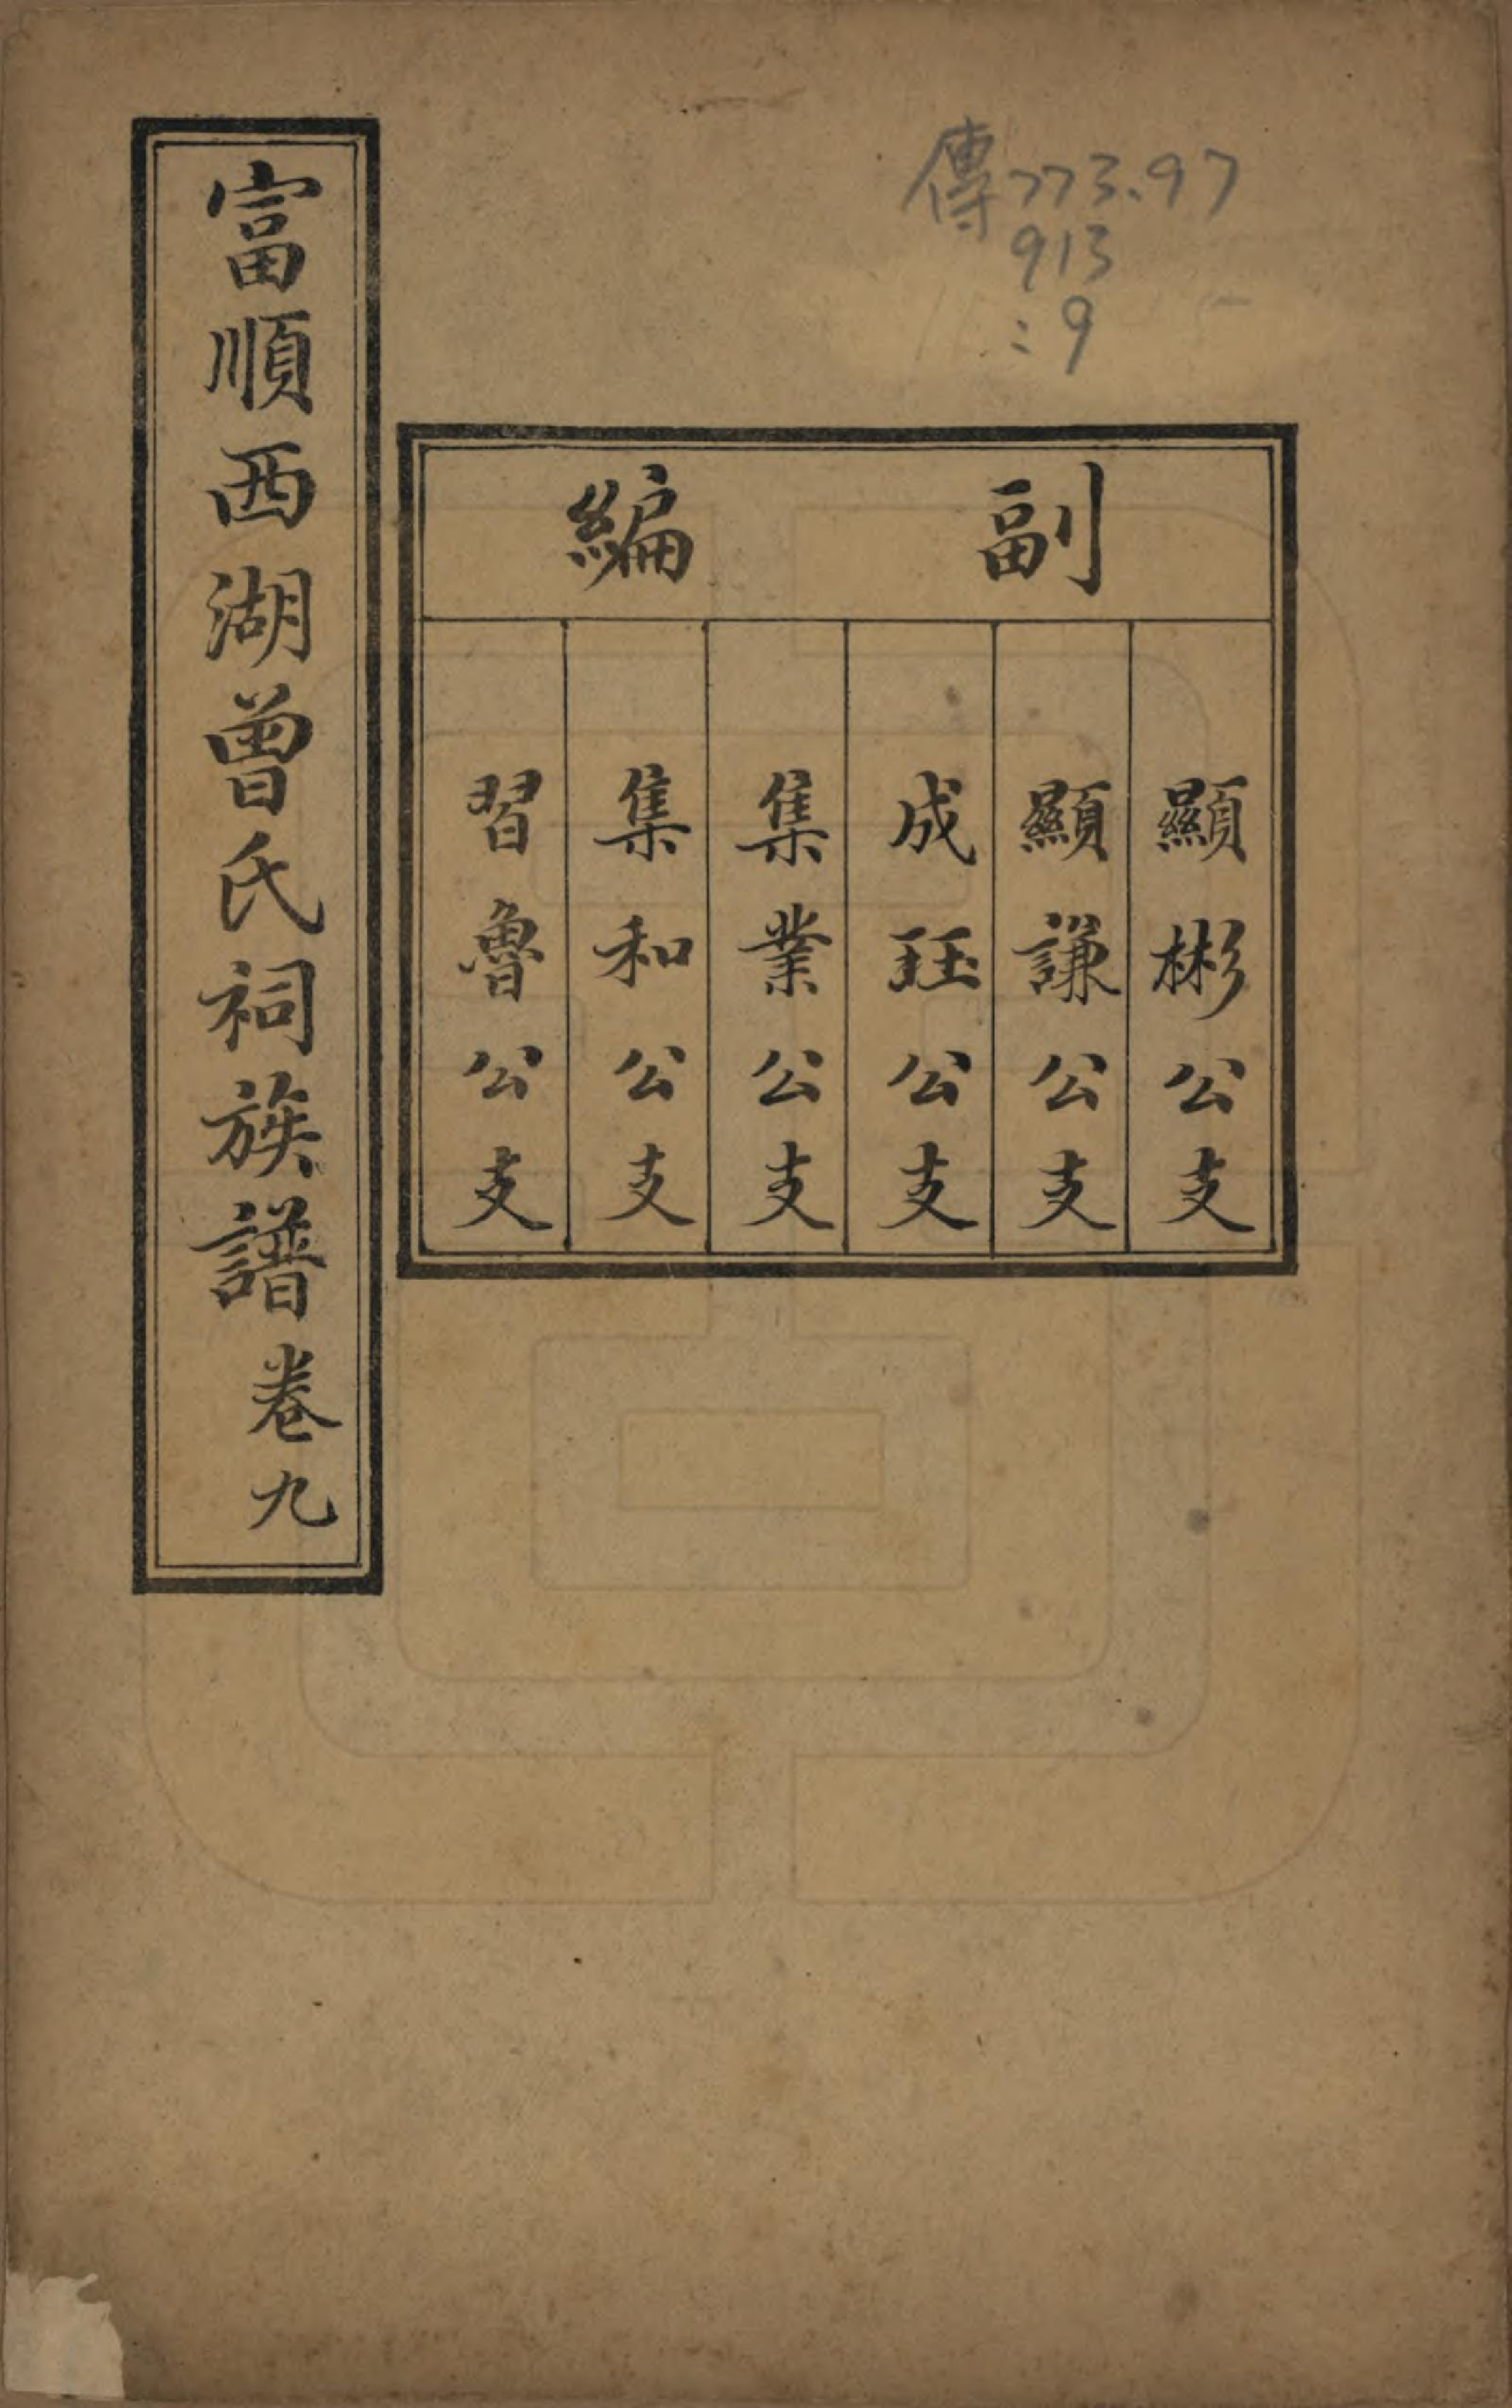 傳773.97
913
:9
副編
顯彬公支
顯謙公支
成珏公支
集業公支
集和公支
習魯公支
富順西湖曾氏祠族譜卷九